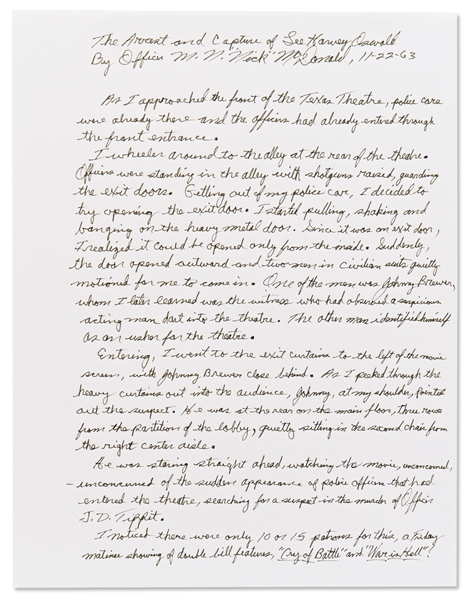 The Arrest and Capture of Lee Harvey Oswald
By Officer M. N. "Nick" McDonald, 11-22-63
As I approached the front of the Texas Theatre, police cars
were already there and the officers had already entered through
the front entrance.
I wheeled around to the alley at the rear of the theatre.
Officers were standing in the alley with shotguns raised, guarding
the exit doors. Getting out of my police car, I decided to
try opening the exit door. I started pulling, shaking and
banging on the heavy metal door. Since it was an exit door,
I realized it could be opened only from the inside. Suddenly,
the door opened outward and two men in civilian suits, quietly
motioned for me to come in. One of the men was Johnny Brewer,
whom I later learned was the witness who had observed a suspicious
acting man, dart into the theatre. The other man identified himself
as an usher for the theatre.
Entering, I went to the exit curtains to the left of the movie
screen, with Johnny Brewer close behind. As I peeked through the
heavy curtains out into the audience, Johnny, at my shoulder, pointed
out the suspect. He was at the rear on the main floor, three rows
from the partition of the lobby, quietly sitting in the second chair from
the right center aisle.
He was staring straight ahead, watching the movie, unconcerned,
- unconcerned of the sudden appearance of police officers that had
entered the theatre, searching for a suspect in the murder of Officer
J.D. Tippit.
I noticed there were only 10 or 15 patrons for this, a Friday
matinee showing of double bill features, "Cry of Battle" and "War is Hell".